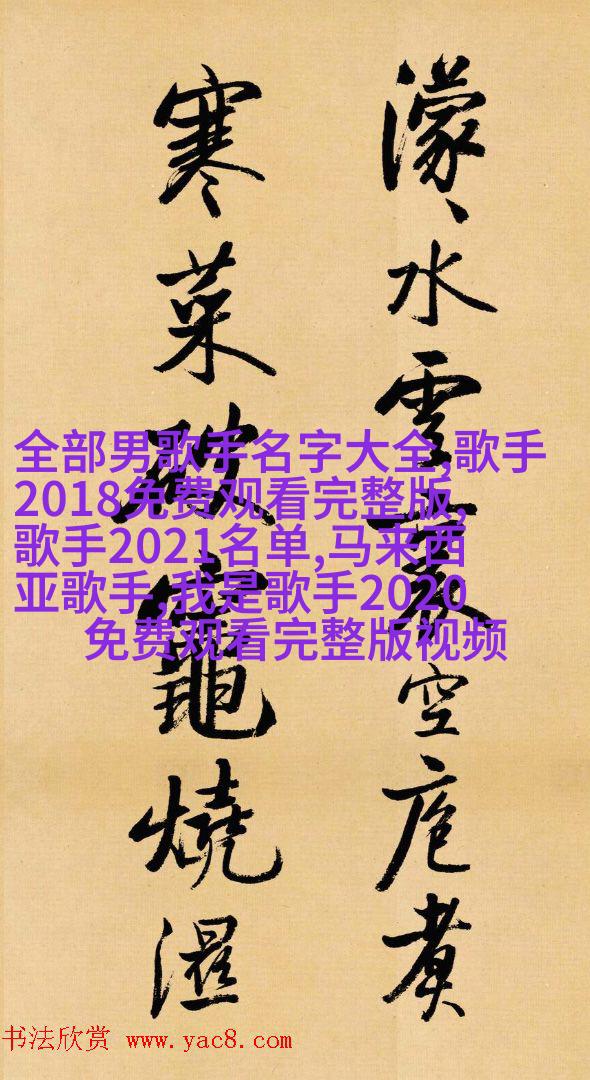 濛〻水雲裏空庖煮
寒菜破竈燒濕
全部男歌手名字大全,歌手
2018免费观看完整版,
歌手2021名单,马来西
亚歌手,我是歌手2020
免费观看完整版视频
书法欣赏 www.yac8.com